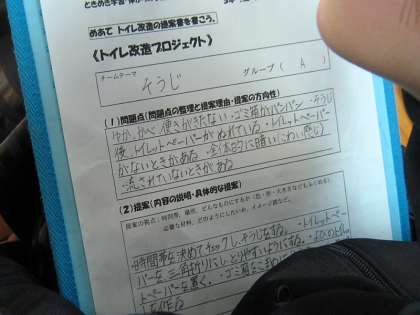 めあて トイレ改造の提案書を書こう。
《トイレ改造プロジェクト》
チームテーマ
そうじ グループ( A )
(1)問題点(問題点の整理と提案理由・提案の方向性)
ゆか、かべ、便きがきたない・ゴミ箱がパンパン・そうじ
後、トイレットペーパーがぬれている・トイレットペーパー
がないときがある・全体的に暗い(にわい感じ)
・流されていないときがある
(2)提案(内容の説明・具体的な提案)
提案の視点:時間帯、場所、どんなものにするか(色・形・大きさなどもふくめる)、
必要な材料、どのようにしたいか、イメージ図など。
・時間帯を決めてチェックし、そうじをする。・トイレットペー
パーを三角折りにしとりやすいようにする。・よびのトイレッ
トペーパーを置く。・ゴミ箱を
を作る